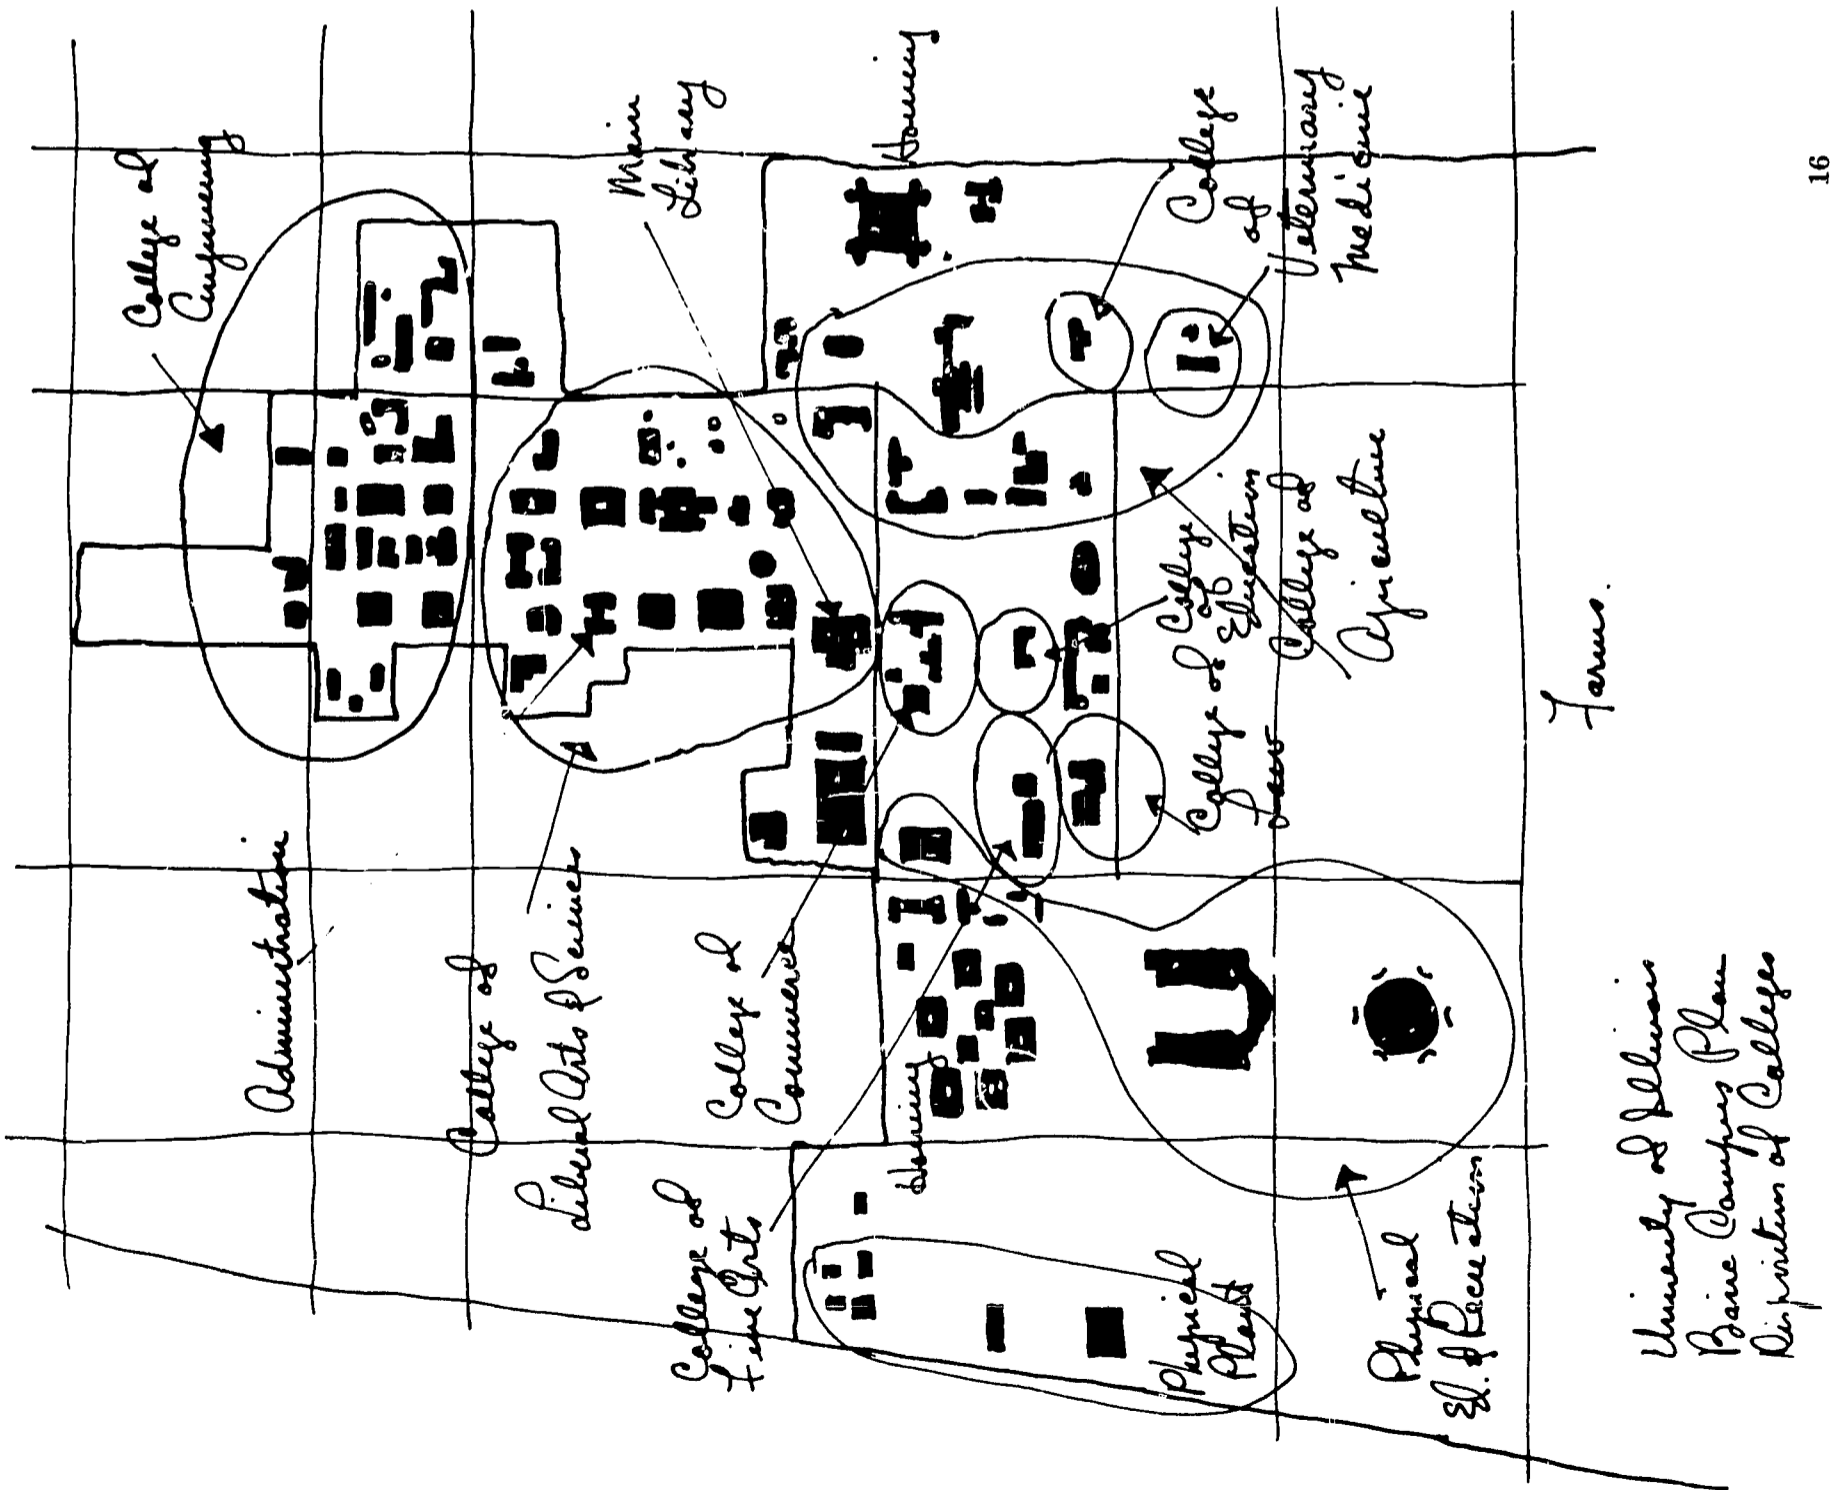 College of
Engineering
Main
Library
Housing
College
of
Veterinary
Medicine
Administration
College of
Liberal Arts & Sciences
College of
Commerce
College of
Fine Arts
Housing
College
of
Education
College of
Law
College of
Agriculture
Physical
Plant
Physical
Ed. & Recreation
Farms.
University of Illinois
Basic Campus Plan
Disposition of Colleges
16